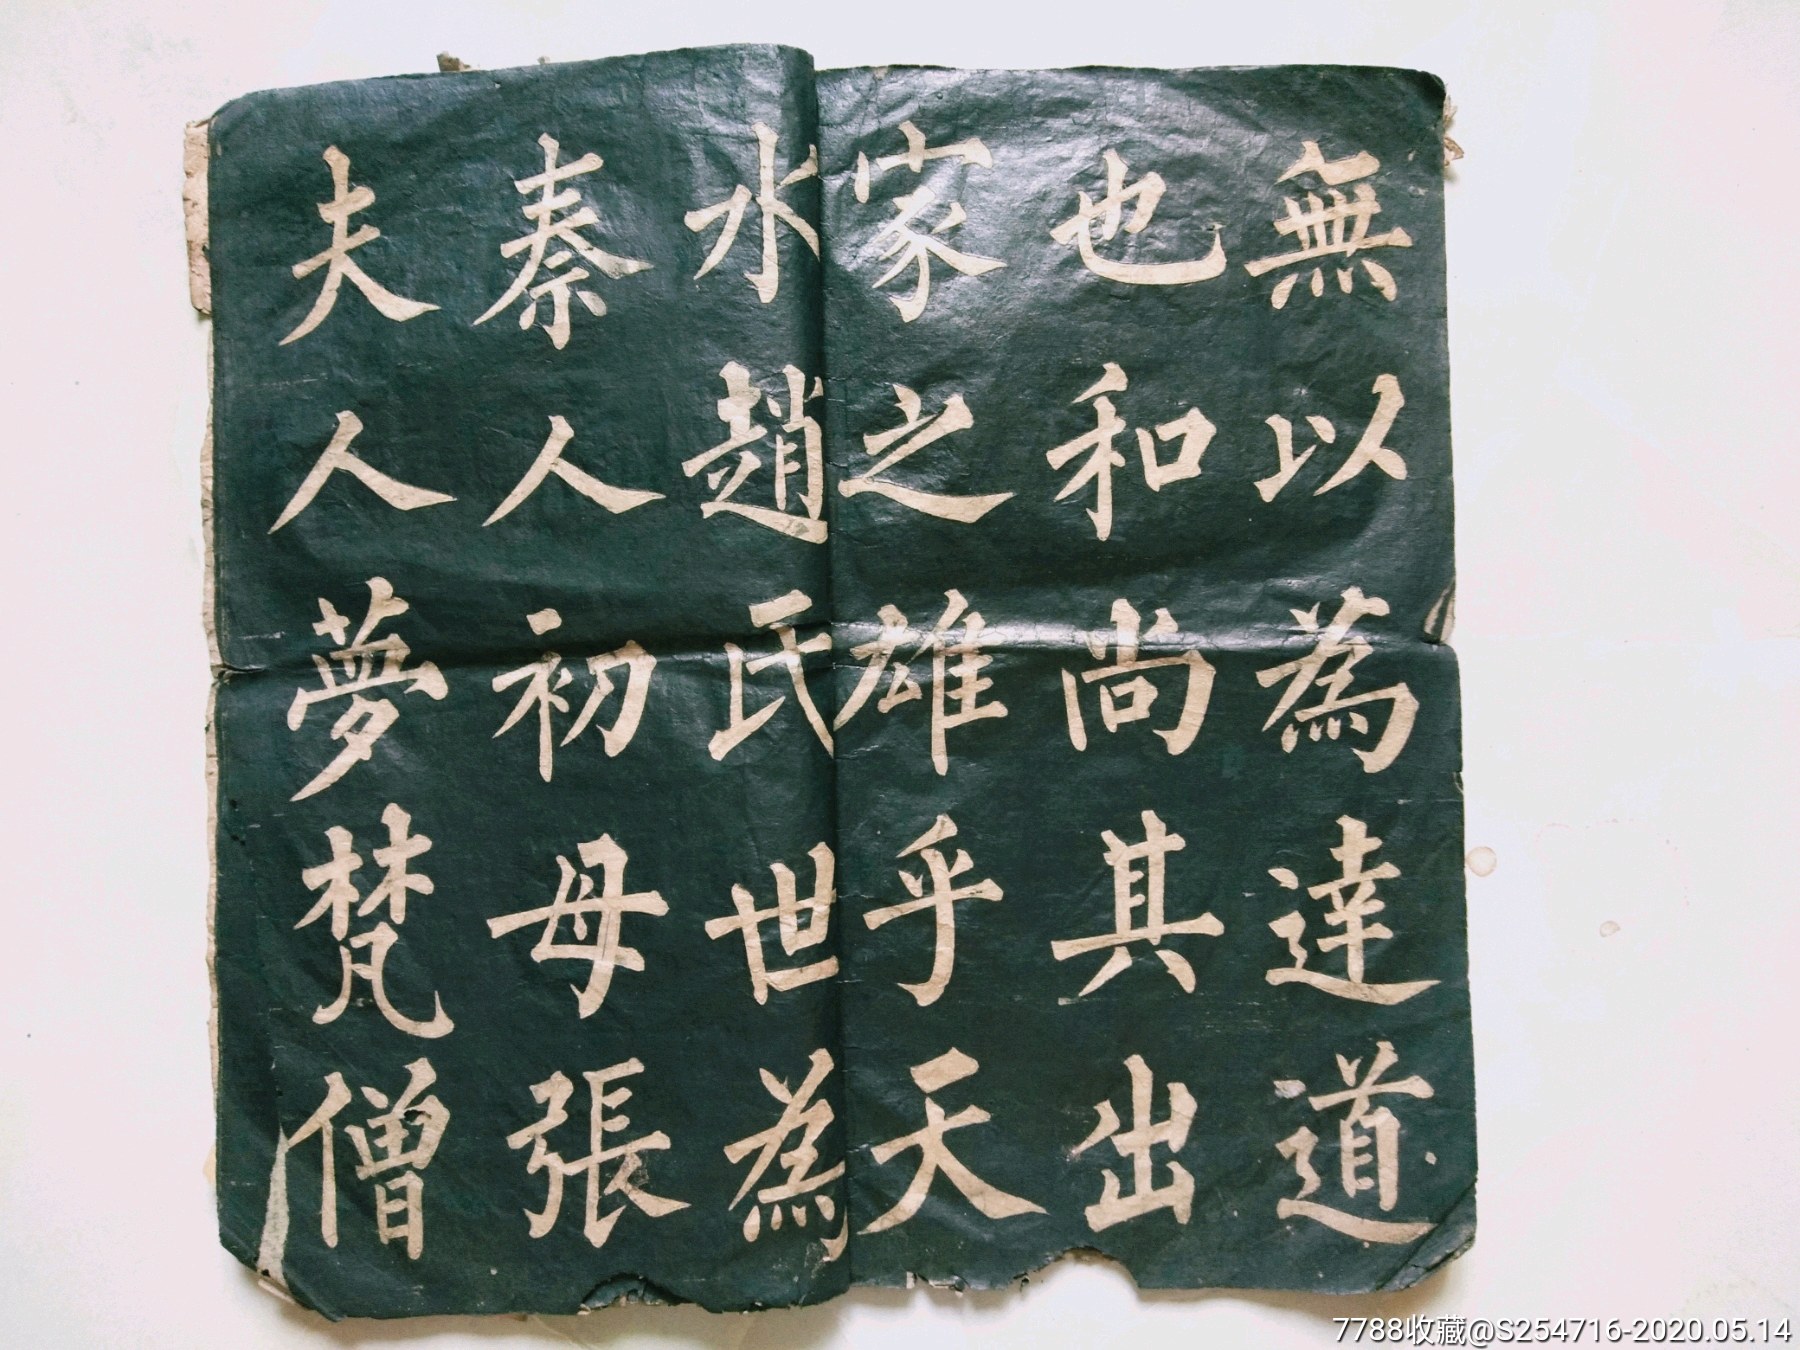 無以為達道
也和尚其出
家之雄乎天
水趙氏世為
秦人初母張
夫人夢梵僧
7788收藏@S254716-2020.05.14